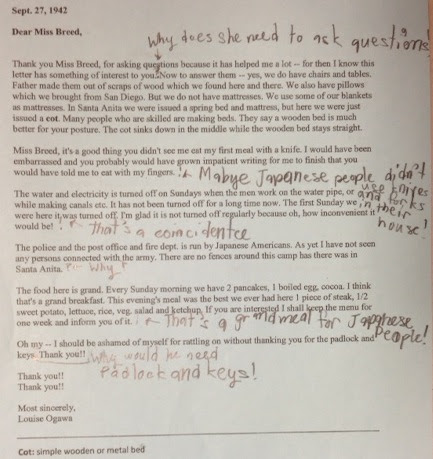 Sept. 27, 1942
Dear Miss Breed,
Why does she need to ask questions!
Thank you Miss Breed, for asking questions because it has helped me a lot -- for then I know this
letter has something of interest to you. Now to answer them -- yes, we do have chairs and tables.
Father made them out of scraps of wood which we found here and there. We also have pillows
which we brought from San Diego. But we do not have mattresses. We use some of our blankets
as mattresses. In Santa Anita we were issued a spring bed and mattress, but here we were just
issued a cot. Many people who are skilled are making beds. They say a wooden bed is much
better for your posture. The cot sinks down in the middle while the wooden bed stays straight.
Miss Breed, it's a good thing you didn't see me eat my first meal with a knife. I would have been
embarrassed and you probably would have grown impatient writing for me to finish that you
would have told me to eat with my fingers. ! Mabye Japenese people didn't
use knives
and forks
in their
house!
The water and electricity is turned off on Sundays when the men work on the water pipe, or
while making canals etc. It has not been turned off for a long time now. The first Sunday we
were here it was turned off. I'm glad it is not turned off regularly because oh, how inconvenient it
would be! ! that's a coincidentce
The police and the post office and fire dept. is run by Japanese Americans. As yet I have not seen
any persons connected with the army. There are no fences around this camp has there was in
Santa Anita. ? Why?
The food here is grand. Every Sunday morning we have 2 pancakes, 1 boiled egg, cocoa. I think
that's a grand breakfast. This evening's meal was the best we ever had here 1 piece of steak, 1/2
sweet potato, lettuce, rice, veg. salad and ketchup. If you are interested I shall keep the menu for
one week and inform you of it. ! That's a grand meal for Japanese
people!
Oh my -- I should be ashamed of myself for rattling on without thanking you for the padlock and
keys. Thank you!! Why would he need
Padlock and keys!
Thank you!!
Thank you!!
Most sincerely,
Louise Ogawa
Cot: simple wooden or metal bed